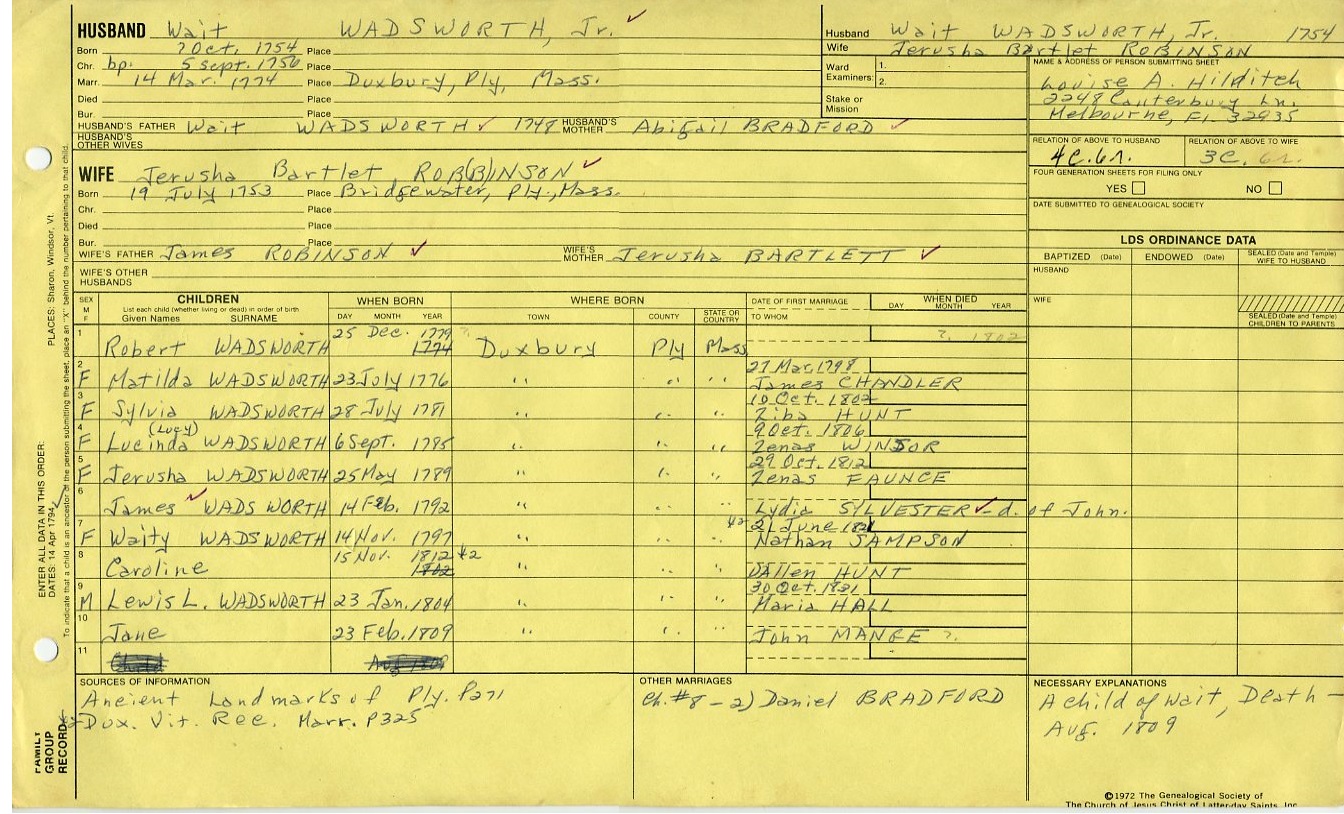 HUSBAND Wait WADSWORTH, Jr.
Born 7 Oct. 1754 Place
Chr. bp. 5 Sept. 1756 Place
Marr. 14 Mar. 1774 Place Duxbury, Ply, Mass.
Died Place
Bur. Place
HUSBAND'S FATHER Wait WADSWORTH 1748 HUSBAND'S MOTHER Abigail BRADFORD
HUSBAND'S OTHER WIVES
Husband Wait WADSWORTH, Jr. 1754
Wife Jerusha Bartlet ROBINSON
Ward 1.
Examiners: 2.
Stake or Mission
NAME & ADDRESS OF PERSON SUBMITTING SHEET
Louise A. Hilditch
2248 Canterbury Ln.
Melbourne, Fl 32935
RELATION OF ABOVE TO HUSBAND RELATION OF ABOVE TO WIFE
4C.6r. 3C. 6r.
FOUR GENERATION SHEETS FOR FILING ONLY
YES NO
DATE SUBMITTED TO GENEALOGICAL SOCIETY
WIFE Jerusha Bartlet ROB(B)INSON
Born 19 July 1753 Place Bridgewater, Ply., Mass.
Chr. Place
Died Place
Bur. Place
WIFE'S FATHER James ROBINSON WIFE'S MOTHER Jerusha BARTLETT
WIFE'S OTHER HUSBANDS
LDS ORDINANCE DATA
BAPTIZED (Date) ENDOWED (Date) SEALED (Date and Temple) WIFE TO HUSBAND
HUSBAND
WIFE
SEALED (Date and Temple) CHILDREN TO PARENTS
SEX M F CHILDREN WHEN BORN WHERE BORN DATE OF FIRST MARRIAGE WHEN DIED
List each child (whether living or dead) in order of birth
Given Names SURNAME DAY MONTH YEAR TOWN COUNTY STATE OR COUNTRY TO WHOM DAY MONTH YEAR
1 25 Dec. 1779 ?. ?. 1802
Robert WADSWORTH 1774 Duxbury Ply Mass
2 27 Mar. 1798
F Matilda WADSWORTH 23 July 1776 " " " James CHANDLER
3 10 Oct. 1802
F Sylvia WADSWORTH 28 July 1781 " " " Ziba HUNT
4 (Lucy) 9 Oct. 1806
F Lucinda WADSWORTH 6 Sept. 1785 " " " Zenas WINSOR
5 29 Oct. 1812
F Jerusha WADSWORTH 25 May 1789 " " " Zenas FAUNCE
6
James WADSWORTH 14 Feb. 1792 " Lydia SYLVESTER - d. of John.
7 #2 21 June 1821
F Waity WADSWORTH 14 Nov. 1797 " " " Nathan SAMPSON
8 15 Nov. 1812 #2
Caroline 1802 " " " Allen HUNT
9 30 Oct. 1821
M Lewis L. WADSWORTH 23 Jan. 1804 " " " Maria HALL
10
Jane 23 Feb. 1809 " " " John MANGE ?.
11 Child Aug 1809
SOURCES OF INFORMATION
Ancient Landmarks of Ply. P271
#2 Dux. Vit. Rec. Marr. P325
OTHER MARRIAGES
Ch. #8 - 2) Daniel BRADFORD
NECESSARY EXPLANATIONS
A child of Wait, Death -
Aug. 1809
©1972 The Genealogical Society of
The Church of Jesus Christ of Latter-day Saints, Inc.
PLACES: Sharon, Windsor, Vt.
To indicate that a child is an ancestor of the person submitting the sheet, place an "X" behind the number pertaining to that child.
ENTER ALL DATA IN THIS ORDER:
DATES: 14 Apr 1794
FAMILY GROUP RECORD